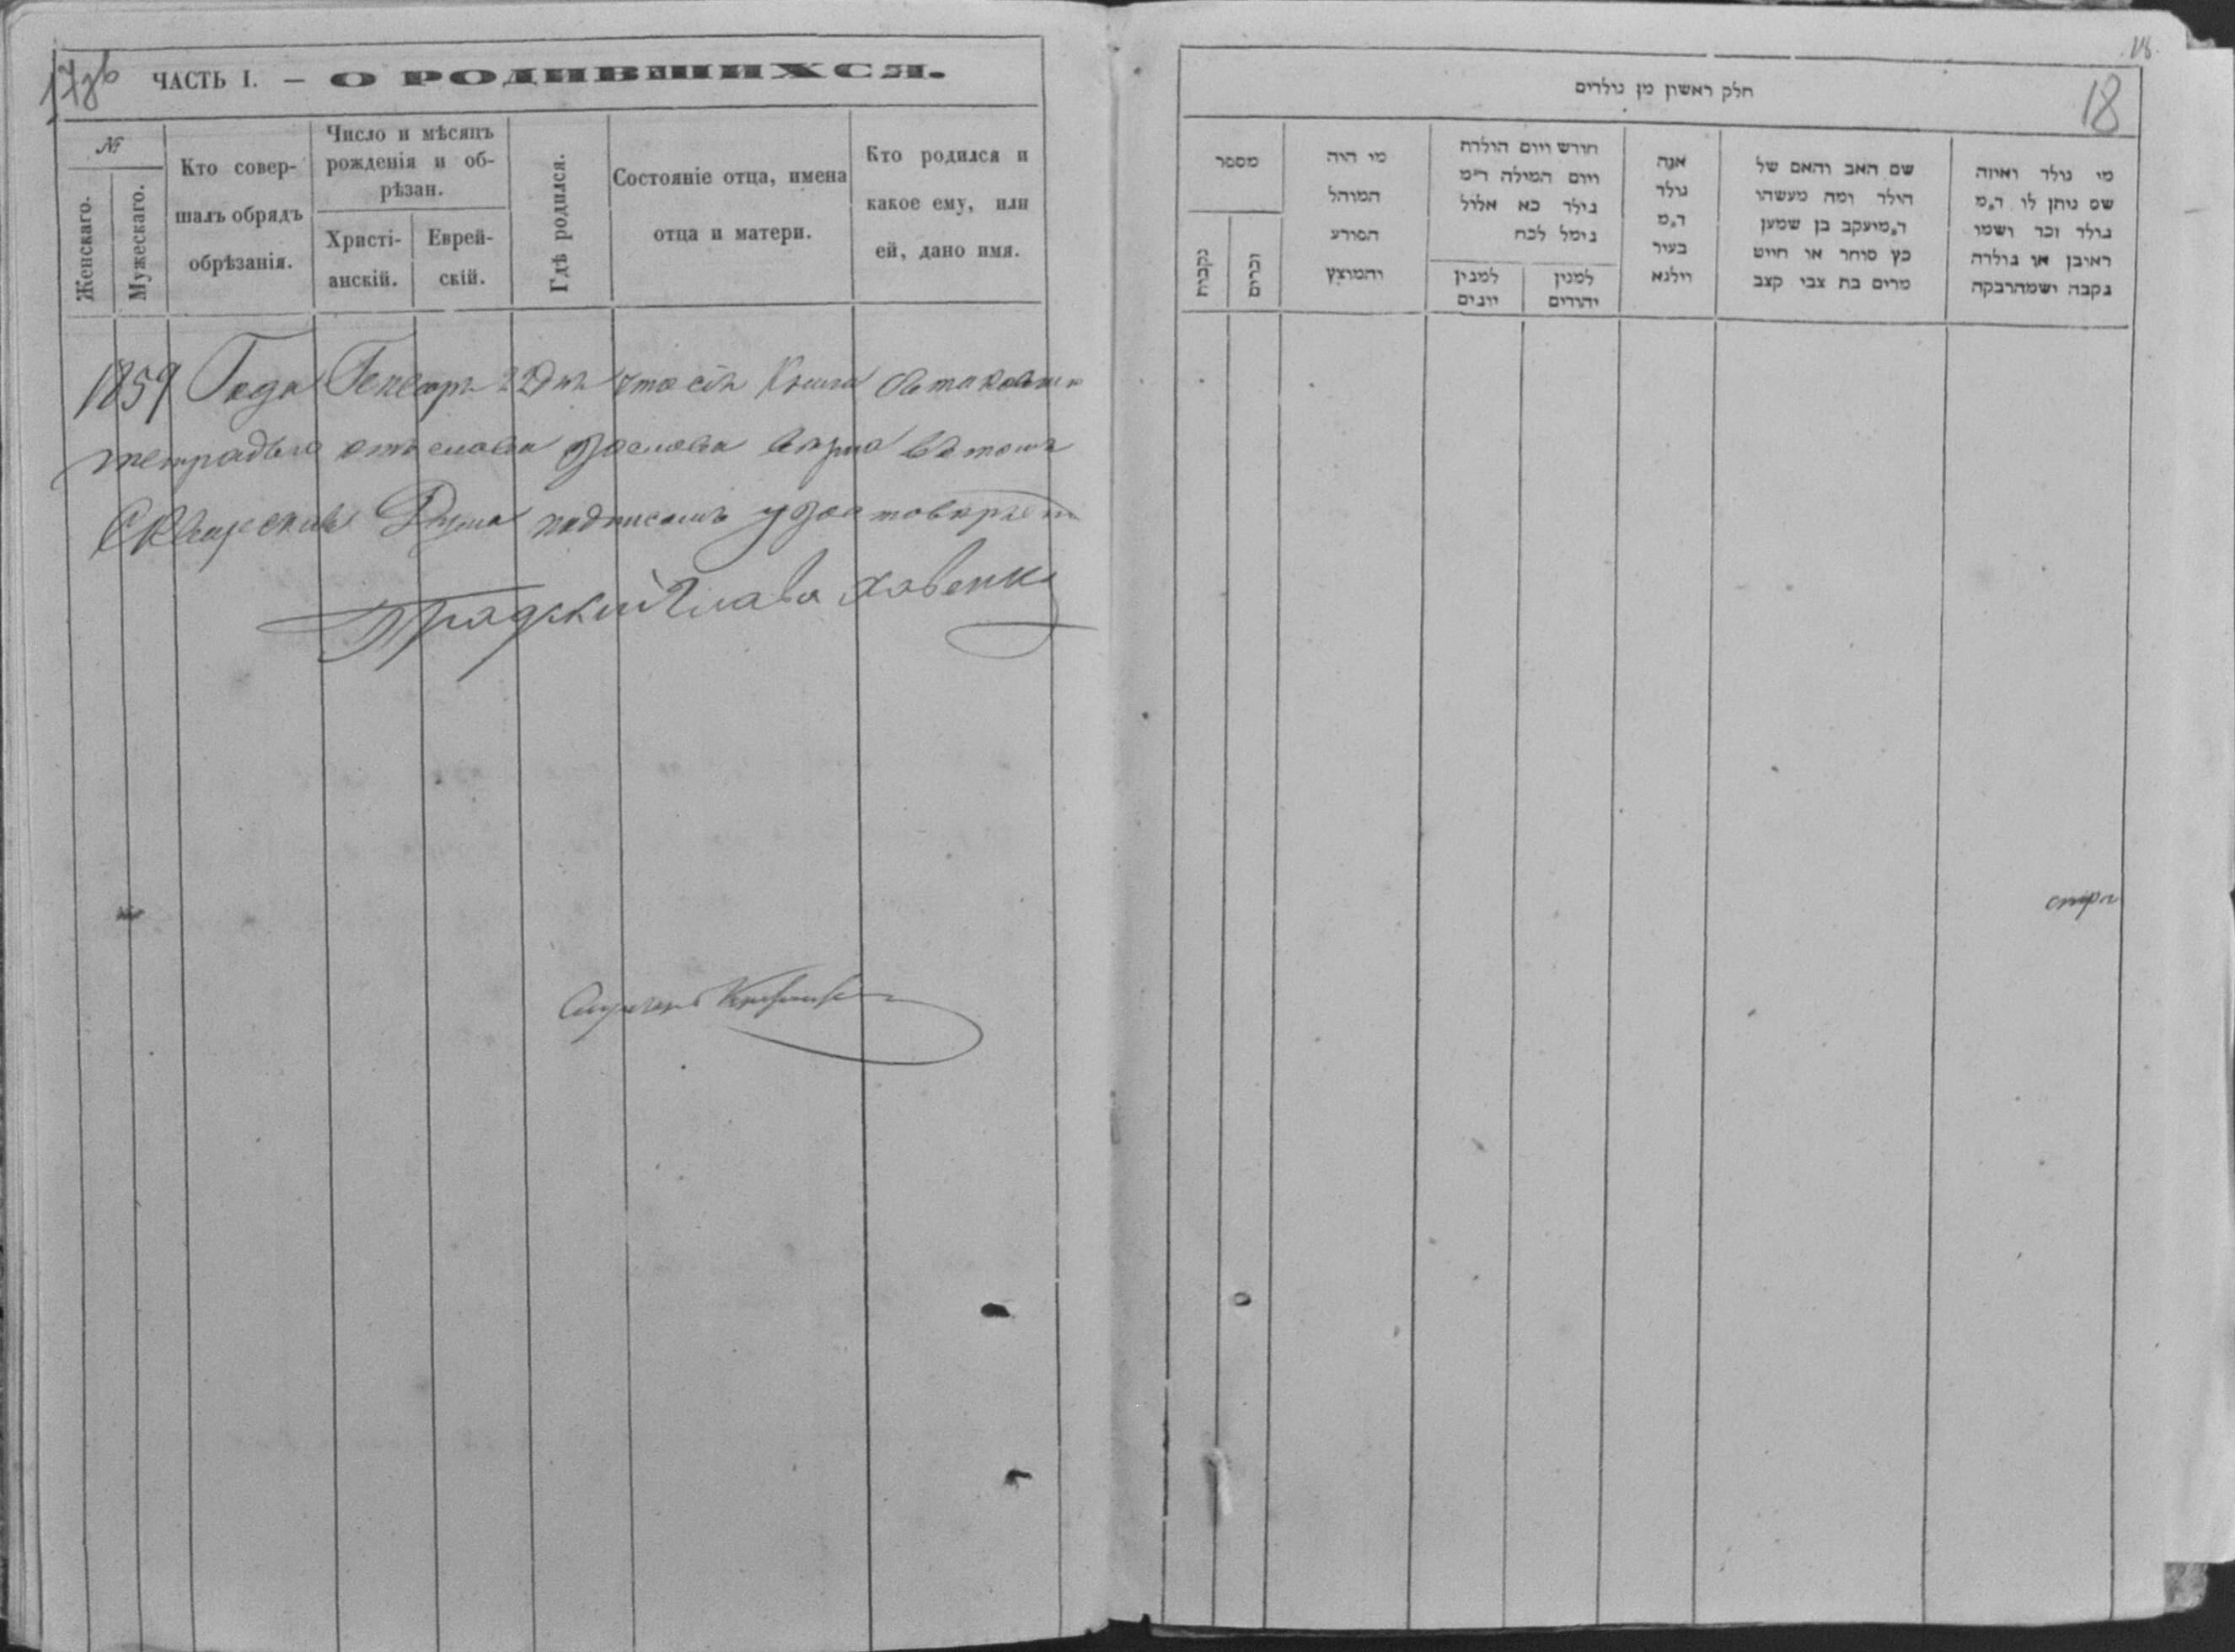 17об
ЧАСТЬ I. — О РОДИВШИХСЯ.
№
Женскаго.
Мужескаго.
Кто совер-
шалъ обрядъ
обрѣзанія.
Число и мѣсяцъ
рожденія и об-
рѣзан.
Христі-
анскій.
Еврей-
скій.
Гдѣ родился.
Состояніе отца, имена
отца и матери.
Кто родился и
какое ему, или
ей, дано имя.
1859 Года Генваря 2 Дня что сія Книга съ таковою
тетрадью отъ слова до слова вѣрна въ томъ
Сквирская Дума подписомъ удостовѣряетъ
Градский Глава
18.
18
חלק ראשון מן נולדים
מספר
נקבות
זכרים
מי היה
המוהל
הפורע
והמוצץ
חודש ויום הולדת
ויום המילה ד״מ
נולד כא אלול
נימל לכח
למנין
יונים
למנין
יהודים
אנה
נולד
ד״מ
בעיר
ווילנא
שם האב והאם של
הילד ומה מעשהו
ד״מ יעקב בן שמען
כץ סוחר או חייט
מרים בת צבי קצב
מי נולד ואיזה
שם ניתן לו ד״מ
נולד זכר ושמו
ראובן או נולדה
נקבה ושמה רבקה